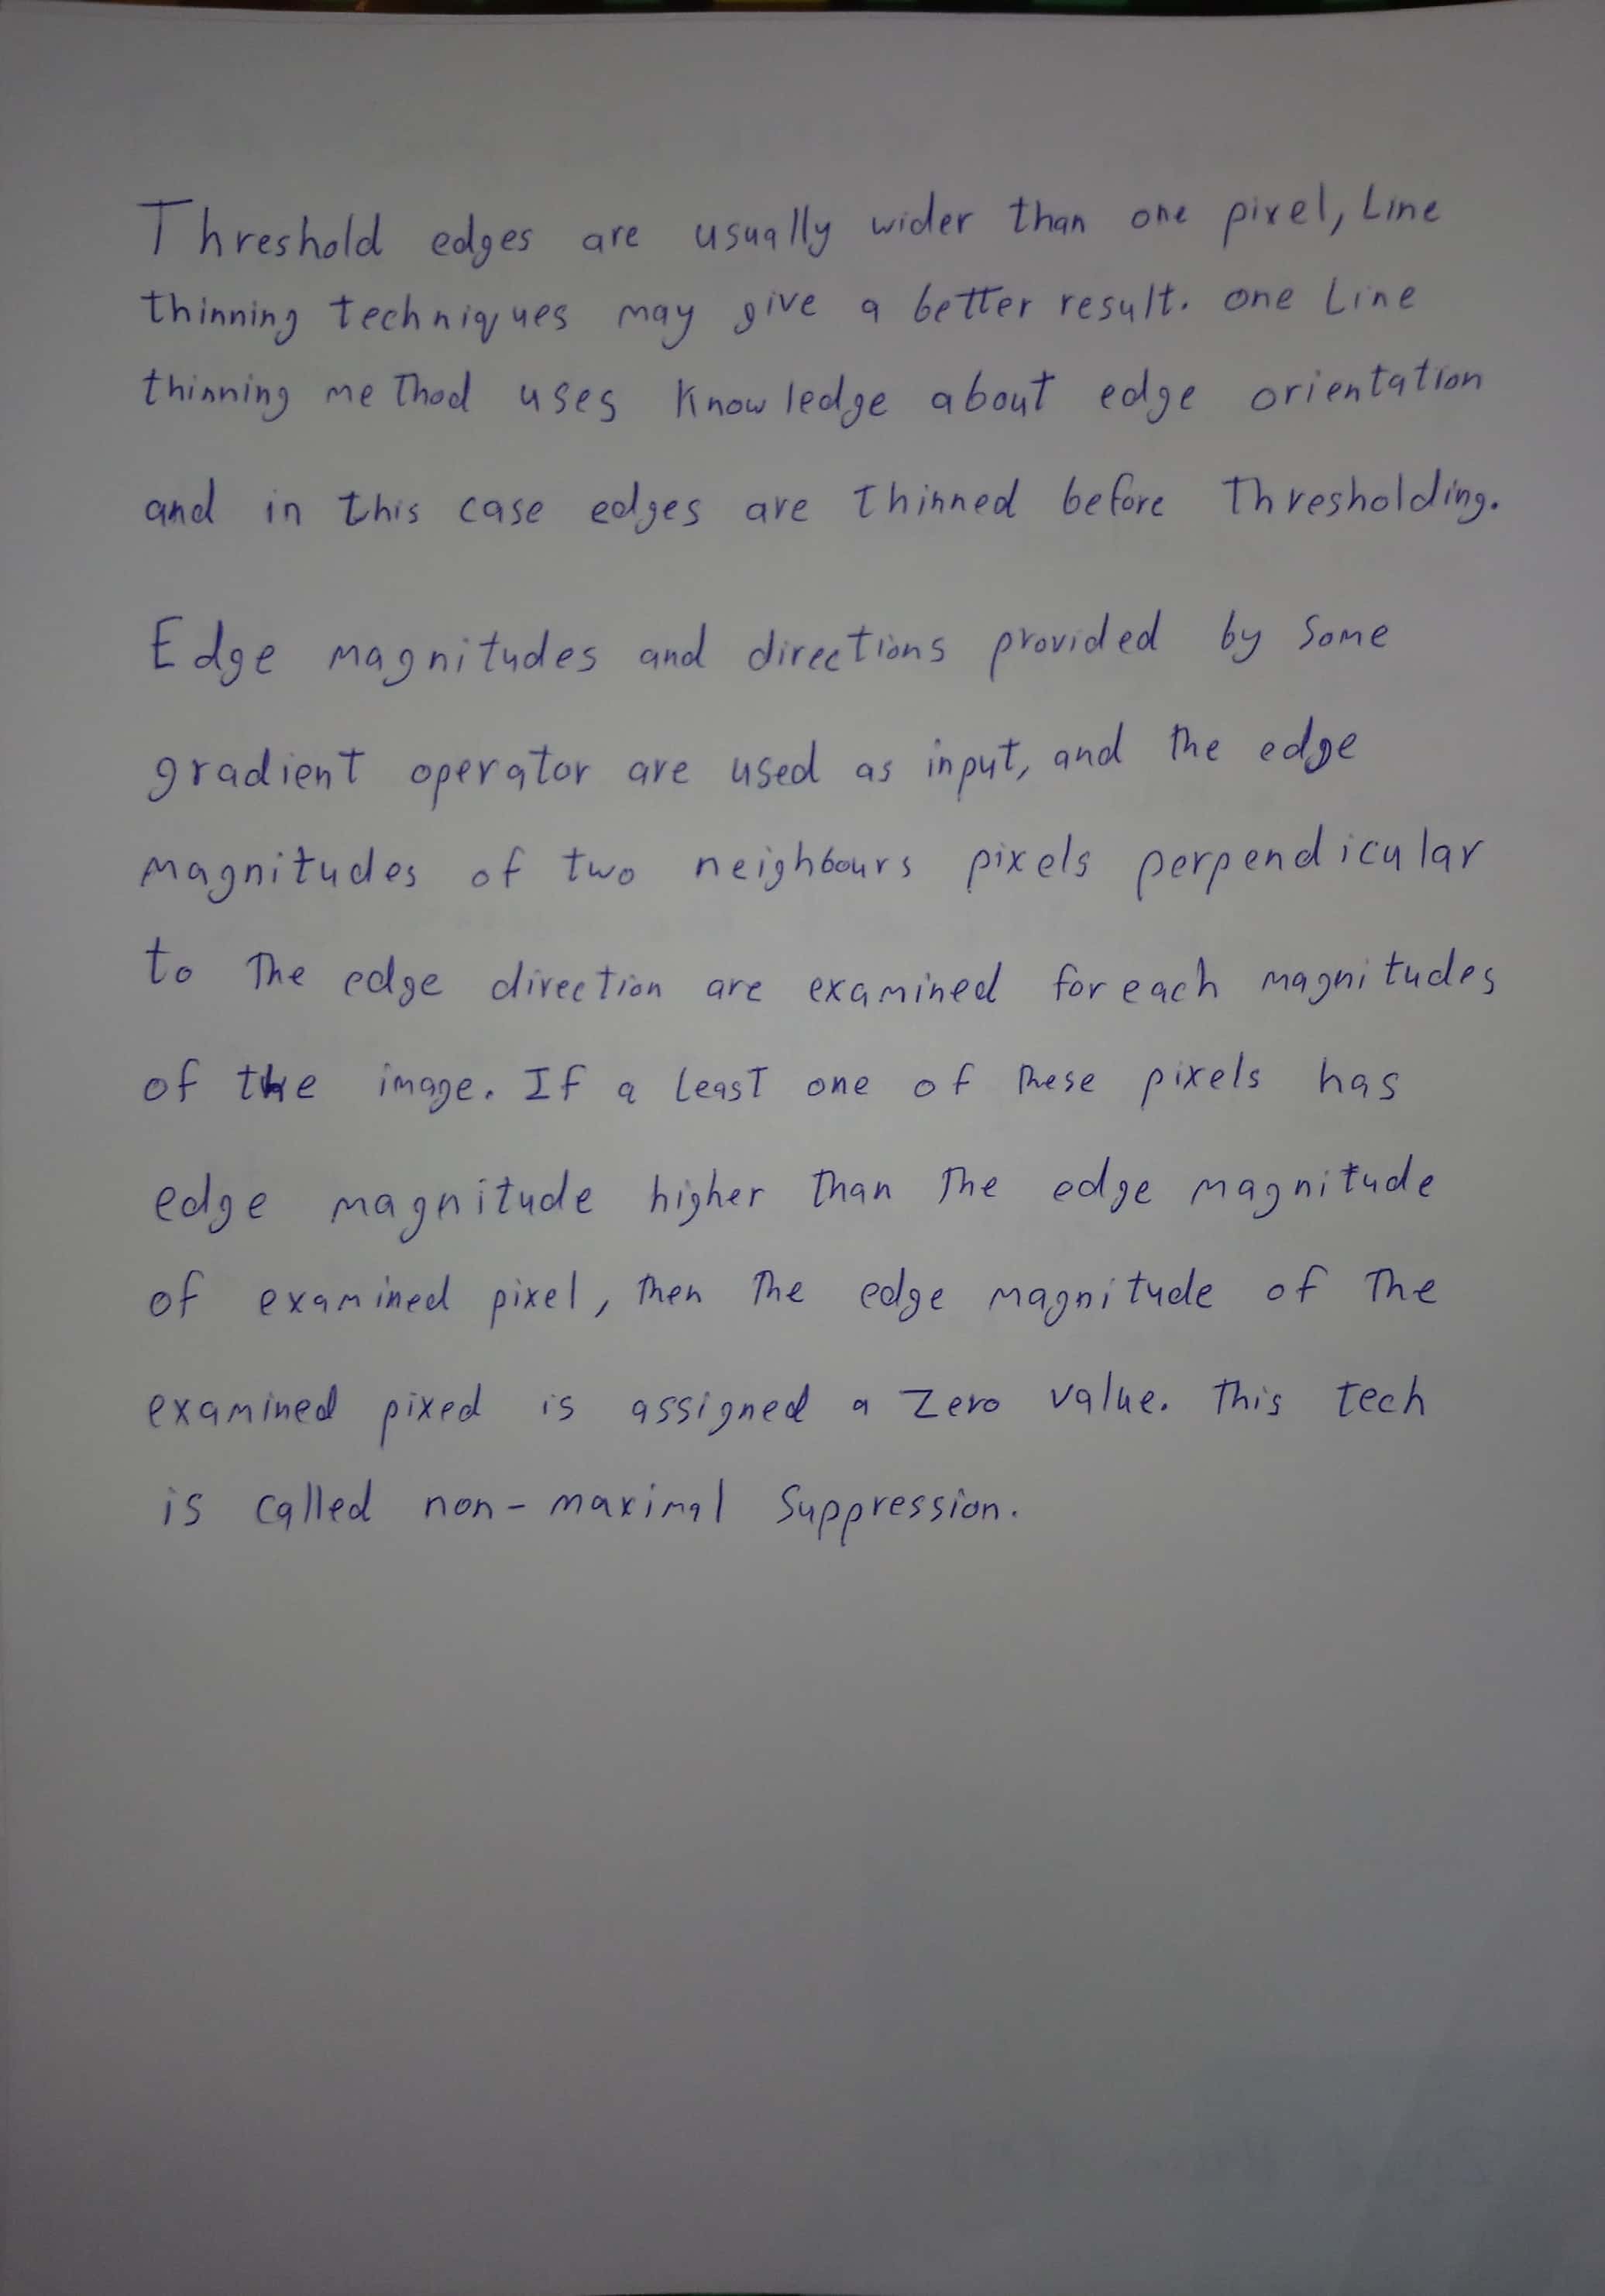 Threshold edges are usually wider than one pixel, Line
thinning techniques may give a better result. one Line
thinning method uses Knowledge about edge orientation
and in this case edges are thinned before Thresholding.
Edge magnitudes and directions provided by Some
gradient operator are used as input, and the edge
magnitudes of two neighbours pixels perpendicular
to The edge direction are examined for each magnitudes
of the image. If a Least one of These pixels has
edge magnitude higher Than The edge magnitude
of examined pixel, Then The edge magnitude of The
examined pixed is assigned a Zero value. This tech
is called non-maximal Suppression.